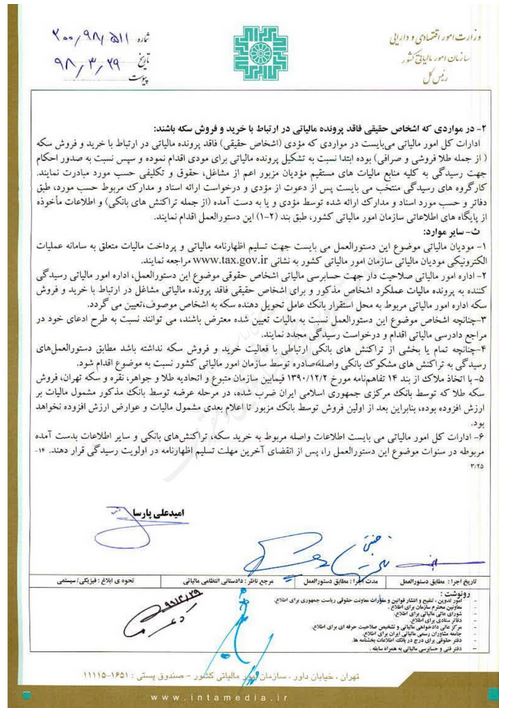 وزارت امور اقتصادی و دارایی
سازمان امور مالیاتی کشور
رئیس کل
شماره: ۲۰۰/۹۸/۵۱۱
تاریخ ۹۸/۳/۲۹
پیوست
۲- در مواردی که اشخاص حقیقی فاقد پرونده مالیاتی در ارتباط با خرید و فروش سکه باشند:
ادارات کل امور مالیاتی می‌بایست در مواردی که مؤدی (اشخاص حقیقی) فاقد پرونده مالیاتی در ارتباط با خرید و فروش سکه
( از جمله طلا فروشی و صرافی) بوده ابتدا نسبت به تشکیل پرونده مالیاتی برای مودی اقدام نموده و سپس نسبت به صدور احکام
جهت رسیدگی به کلیه منابع مالیات های مستقیم مؤدیان مزبور اعم از مشاغل، حقوق و تکلیفی حسب مورد مبادرت نمایند.
کارگروه های رسیدگی منتخب می بایست پس از دعوت از مؤدی و درخواست ارائه اسناد و مدارک مربوط حسب مورد، طبق
دفاتر و حسب مورد اسناد و مدارک ارائه شده توسط مؤدی و یا به دست آمده (از جمله تراکنش های بانکی) و اطلاعات مأخوذه
از پایگاه های اطلاعاتی سازمان امور مالیاتی کشور، طبق بند (۲-۱) این دستورالعمل اقدام نمایند.
ث- سایر موارد:
۱- مودیان مالیاتی موضوع این دستورالعمل می بایست جهت تسلیم اظهارنامه مالیاتی و پرداخت مالیات متعلق به سامانه عملیات
الکترونیکی مودیان مالیاتی سازمان امور مالیاتی کشور به نشانی www.tax.gov.ir مراجعه نمایند.
۲- اداره امور مالیاتی صلاحیت دار جهت حسابرسی مالیاتی اشخاص حقوقی موضوع این دستورالعمل، اداره امور مالیاتی رسیدگی
کننده به پرونده مالیات عملکرد اشخاص مذکور و برای اشخاص حقیقی فاقد پرونده مالیاتی مشاغل در ارتباط با خرید و فروش
سکه اداره امور مالیاتی مربوط به محل استقرار بانک عامل تحویل دهنده سکه به اشخاص موصوف،تعیین می گردد.
۳-چنانچه اشخاص موضوع این دستورالعمل نسبت به مالیات تعیین شده معترض باشند، می توانند نسبت به طرح ادعای خود در
مراجع دادرسی مالیاتی اقدام و درخواست رسیدگی مجدد نمایند.
۴-چنانچه تمام یا بخشی از تراکنش های بانکی ارتباطی با فعالیت خرید و فروش سکه نداشته باشد مطابق دستورالعمل‌های
رسیدگی به تراکنش های مشکوک بانکی واصله/صادره توسط سازمان امور مالیاتی کشور نسبت به موضوع اقدام شود.
۵- با اتخاذ ملاک از بند ۱۴ تفاهم‌نامه مورخ ۱۳۹۰/۱۲/۲ فیمابین سازمان متبوع و اتحادیه طلا و جواهر، نقره و سکه تهران، فروش
سکه طلا که توسط بانک مرکزی جمهوری اسلامی ایران ضرب شده، در مرحله عرضه توسط بانک مذکور مشمول مالیات بر
ارزش افزوده بوده، بنابراین بعد از اولین فروش توسط بانک مزبور تا اعلام بعدی مشمول مالیات و عوارض ارزش افزوده نخواهد
بود.
۶- ادارات کل امور مالیاتی می بایست اطلاعات واصله مربوط به خرید سکه، تراکنش‌های بانکی و سایر اطلاعات بدست آمده
مربوطه در سنوات موضوع این دستورالعمل را، پس از انقضای آخرین مهلت تسلیم اظهارنامه در اولویت رسیدگی قرار دهند. ۱۴-
۳/۲۵
امیدعلی پارسا
تاریخ اجرا : مطابق دستورالعمل
مدت اجرا : مطابق دستورالعمل
مرجع ناظر : دادستانی انتظامی مالیاتی
نحوه ی ابلاغ : فیزیکی/ سیستمی
رونوشت :
امور تدوین ، تنقیح و انتشار قوانین و مقررات معاونت حقوقی ریاست جمهوری برای اطلاع.
معاونین محترم سازمان برای اطلاع.
شورای عالی مالیاتی برای اطلاع.
دفاتر ستادی برای اطلاع.
مرکز عالی دادخواهی مالیاتی و تشخیص صلاحیت حرفه ای برای اطلاع.
جامعه مشاوران رسمی مالیاتی ایران برای اطلاع.
دفتر فنی و حسابرسی مالیاتی به همراه سابقه .
تهران ، خیابان داور ، سازمان امور مالیاتی کشور - صندوق پستی : ۱۶۵۱-۱۱۱۱۵
www.intamedia.ir